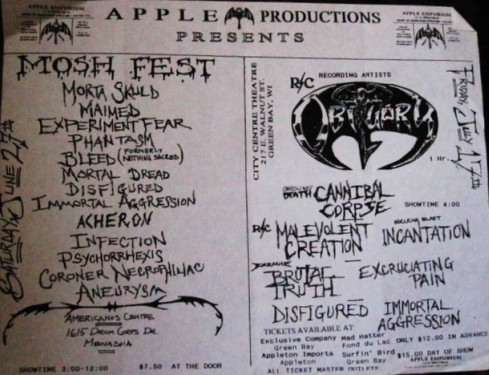 APPLE PRODUCTIONS
PRESENTS
APPLE EMPORIUM
APPLE EMPORIUM
MOSH FEST
SATURDAY JUNE 27th
MORTA SKULD
MAIMED
EXPERIMENT FEAR
PHANTASM
BLEED (FORMERLY NOTHING SACRED)
MORTAL DREAD
DISFIGURED
IMMORTAL AGGRESSION
ACHERON
INFECTION
PSYCHORRHEXIS
CORONER NECROPHILIAC
ANEURYSM
AMERICANOS CENTRE
1615 DR.
MENASHA
SHOWTIME 3:00-12:00 $7.50 AT THE DOOR
CITY CENTRE THEATRE
217 E. WALNUT ST.
GREEN BAY, WI
R/C RECORDING ARTISTS
OBITUARY
1 Hr.
FRIDAY JULY 17th
DEATH CANNIBAL CORPSE
SHOWTIME 4:00
R/C MALEVOLENT CREATION
NUCLEAR BLAST INCANTATION
EARACHE BRUTAL TRUTH
EXCRUCIATING PAIN
DISFIGURED
IMMORTAL AGGRESSION
TICKETS AVAILABLE AT:
Exclusive Company Green Bay
Mad Hatter Fond du Lac
ONLY $12.00 IN ADVANCE
Appleton Imports Appleton
Surfin' Bird Green Bay
$15.00 DAY OF SHOW
APPLE EMPORIUM
ALL TICKET MASTER OUTLETS